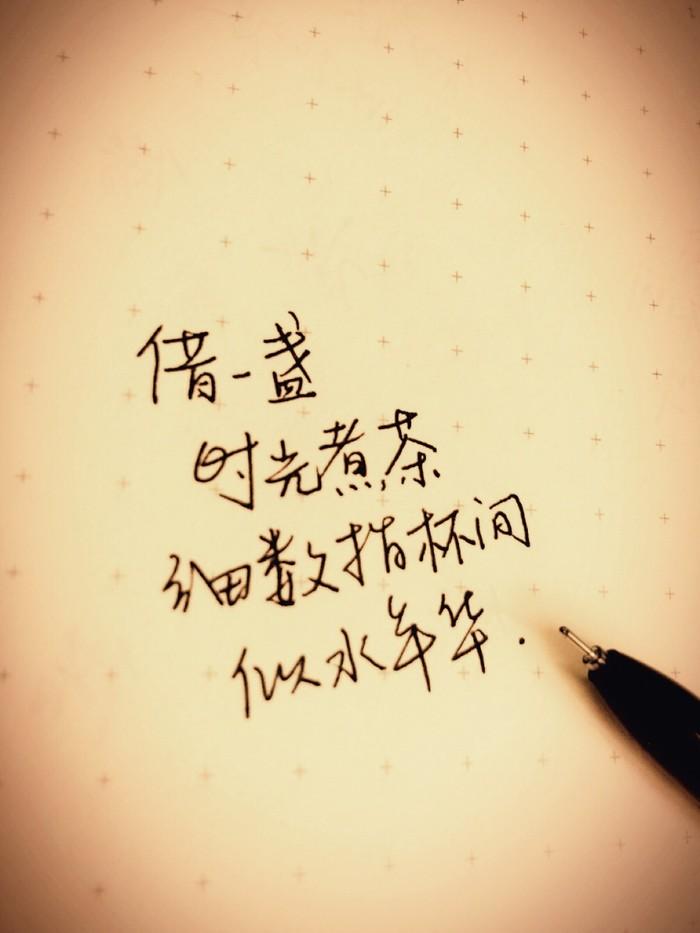 借一盏
时光煮茶
细数指杯间
似水年华.